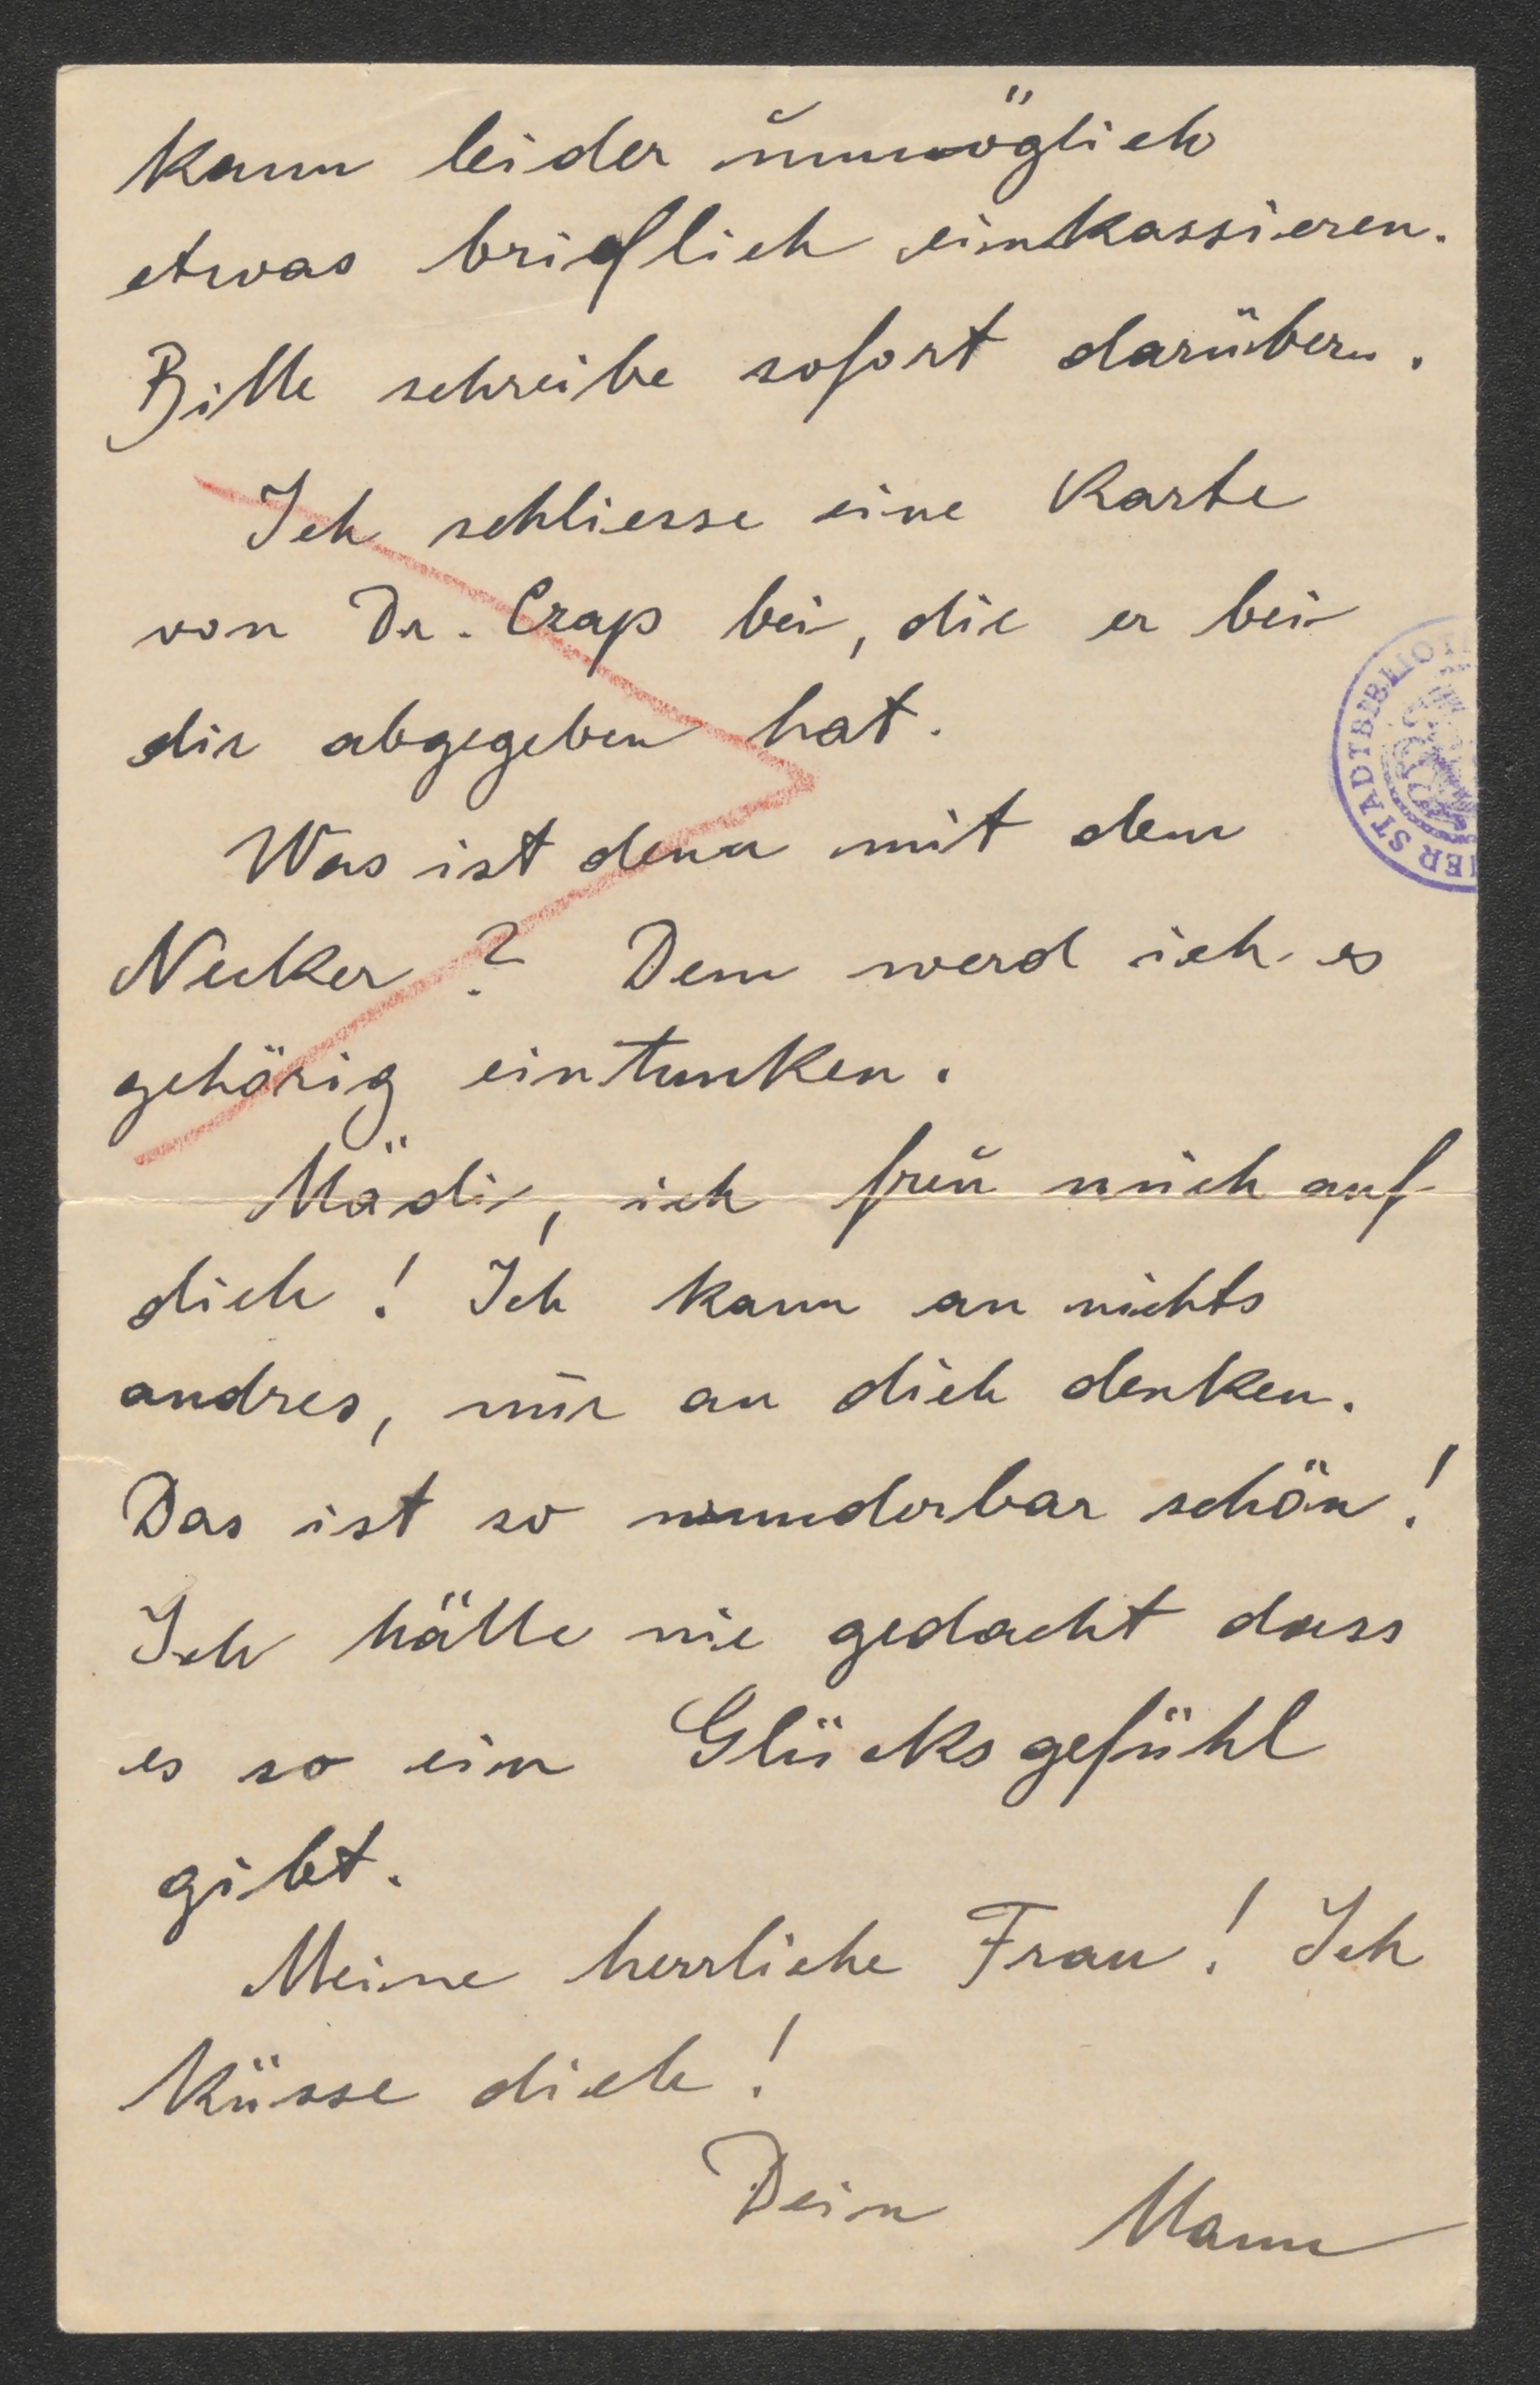 kann leider unmöglich
etwas brieflich einkassieren.
Bitte schreibe sofort darüber.
Ich schliesse eine Karte
von Dr. Czap bei, die er bei
dir abgegeben hat.
Was ist denn mit dem
Necker? Dem werd ich es
gehörig eintunken.
Mädi, ich freu mich auf
dich! Ich kann an nichts
andres, nur an dich denken.
Das ist so wunderbar schön!
Ich hätte nie gedacht dass
es so ein Glücksgefühl
gibt.
Meine herrliche Frau! Ich
küsse dich!
Dein Mann
ER STADTBIBLIOT